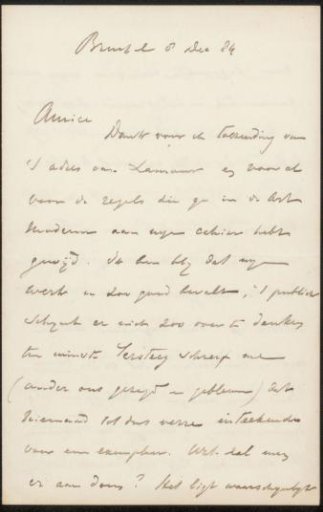 Brussel 8 Dec 84
Amice
Dank voor de toezending van
't adres van Lamour en vooral
voor de regels die ge in de Art
Moderne aan mijn cahier hebt
gewijd. Ik ben blij dat mijn
werk u zoo goed bevalt, 't publiek
schijnt er niet zoo over te denken
ten minste Tersteeg schreef me
(onder ons gezegd en gebleven) dat
niemand tot dus verre inteekende
voor een exemplaar. Wat zal men
er aan doen? Het ligt waarschijnlijk